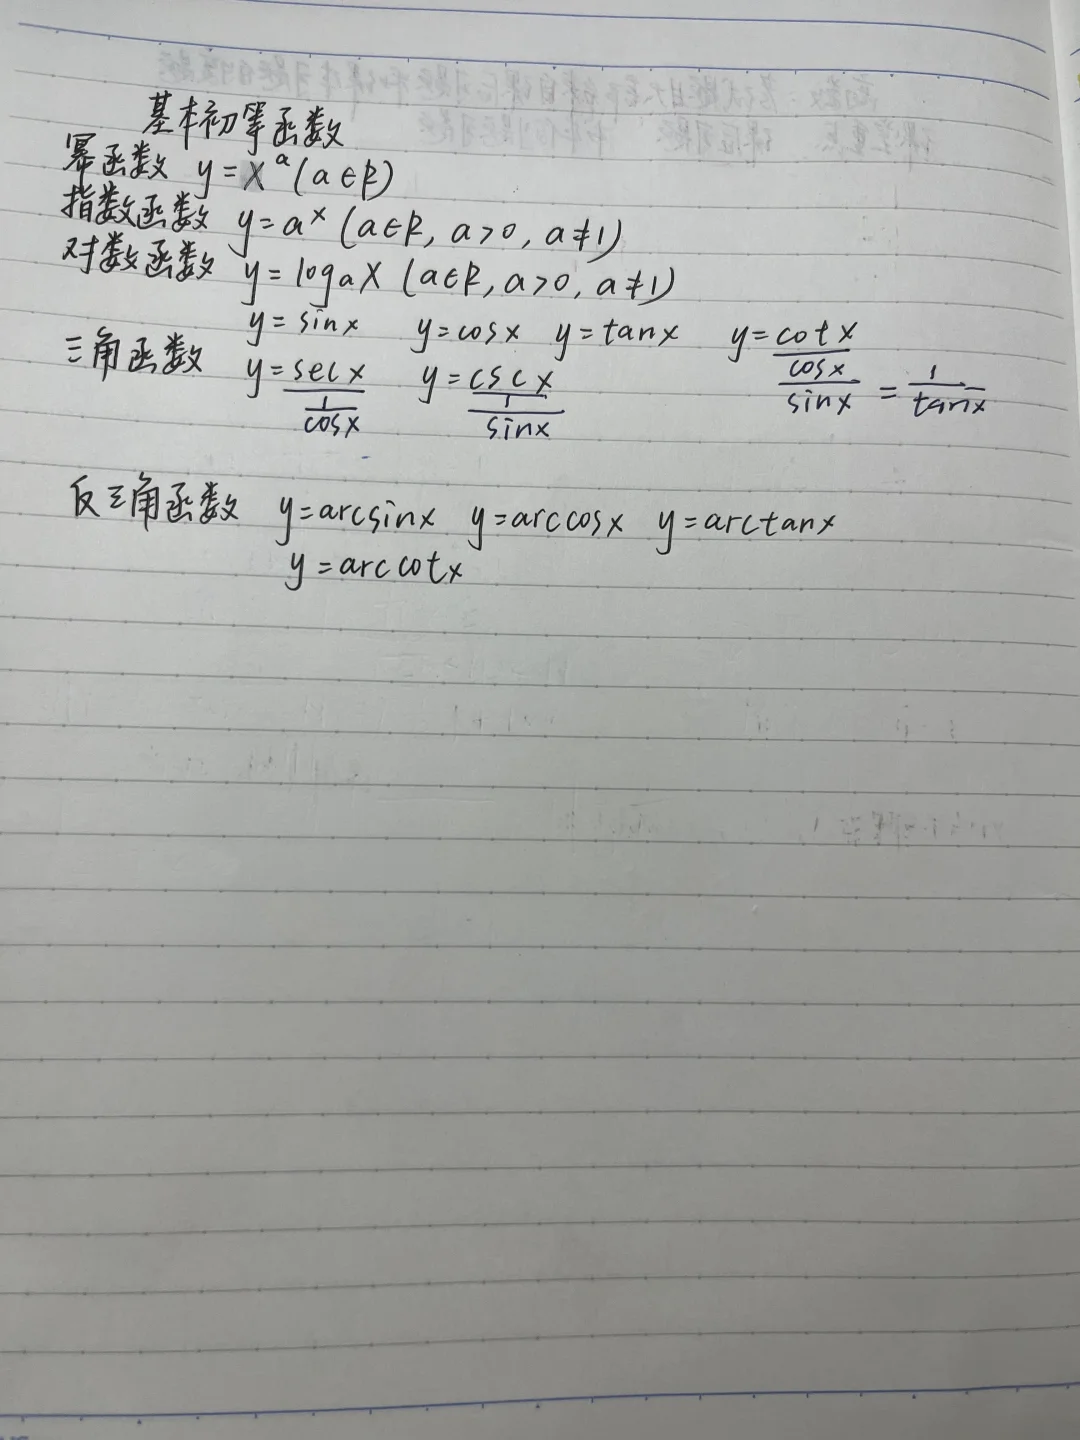 基本初等函数
幂函数 y=x^a (a∈R)
指数函数 y=a^x (a∈R, a>0, a≠1)
对数函数 y=log_a x (a∈R, a>0, a≠1)
y=sinx y=cosx y=tanx y=cotx
三角函数 y=secx y=cscx cosx/sinx = 1/tanx
1/cosx 1/sinx
反三角函数 y=arcsinx y=arccosx y=arctanx
y=arccotx